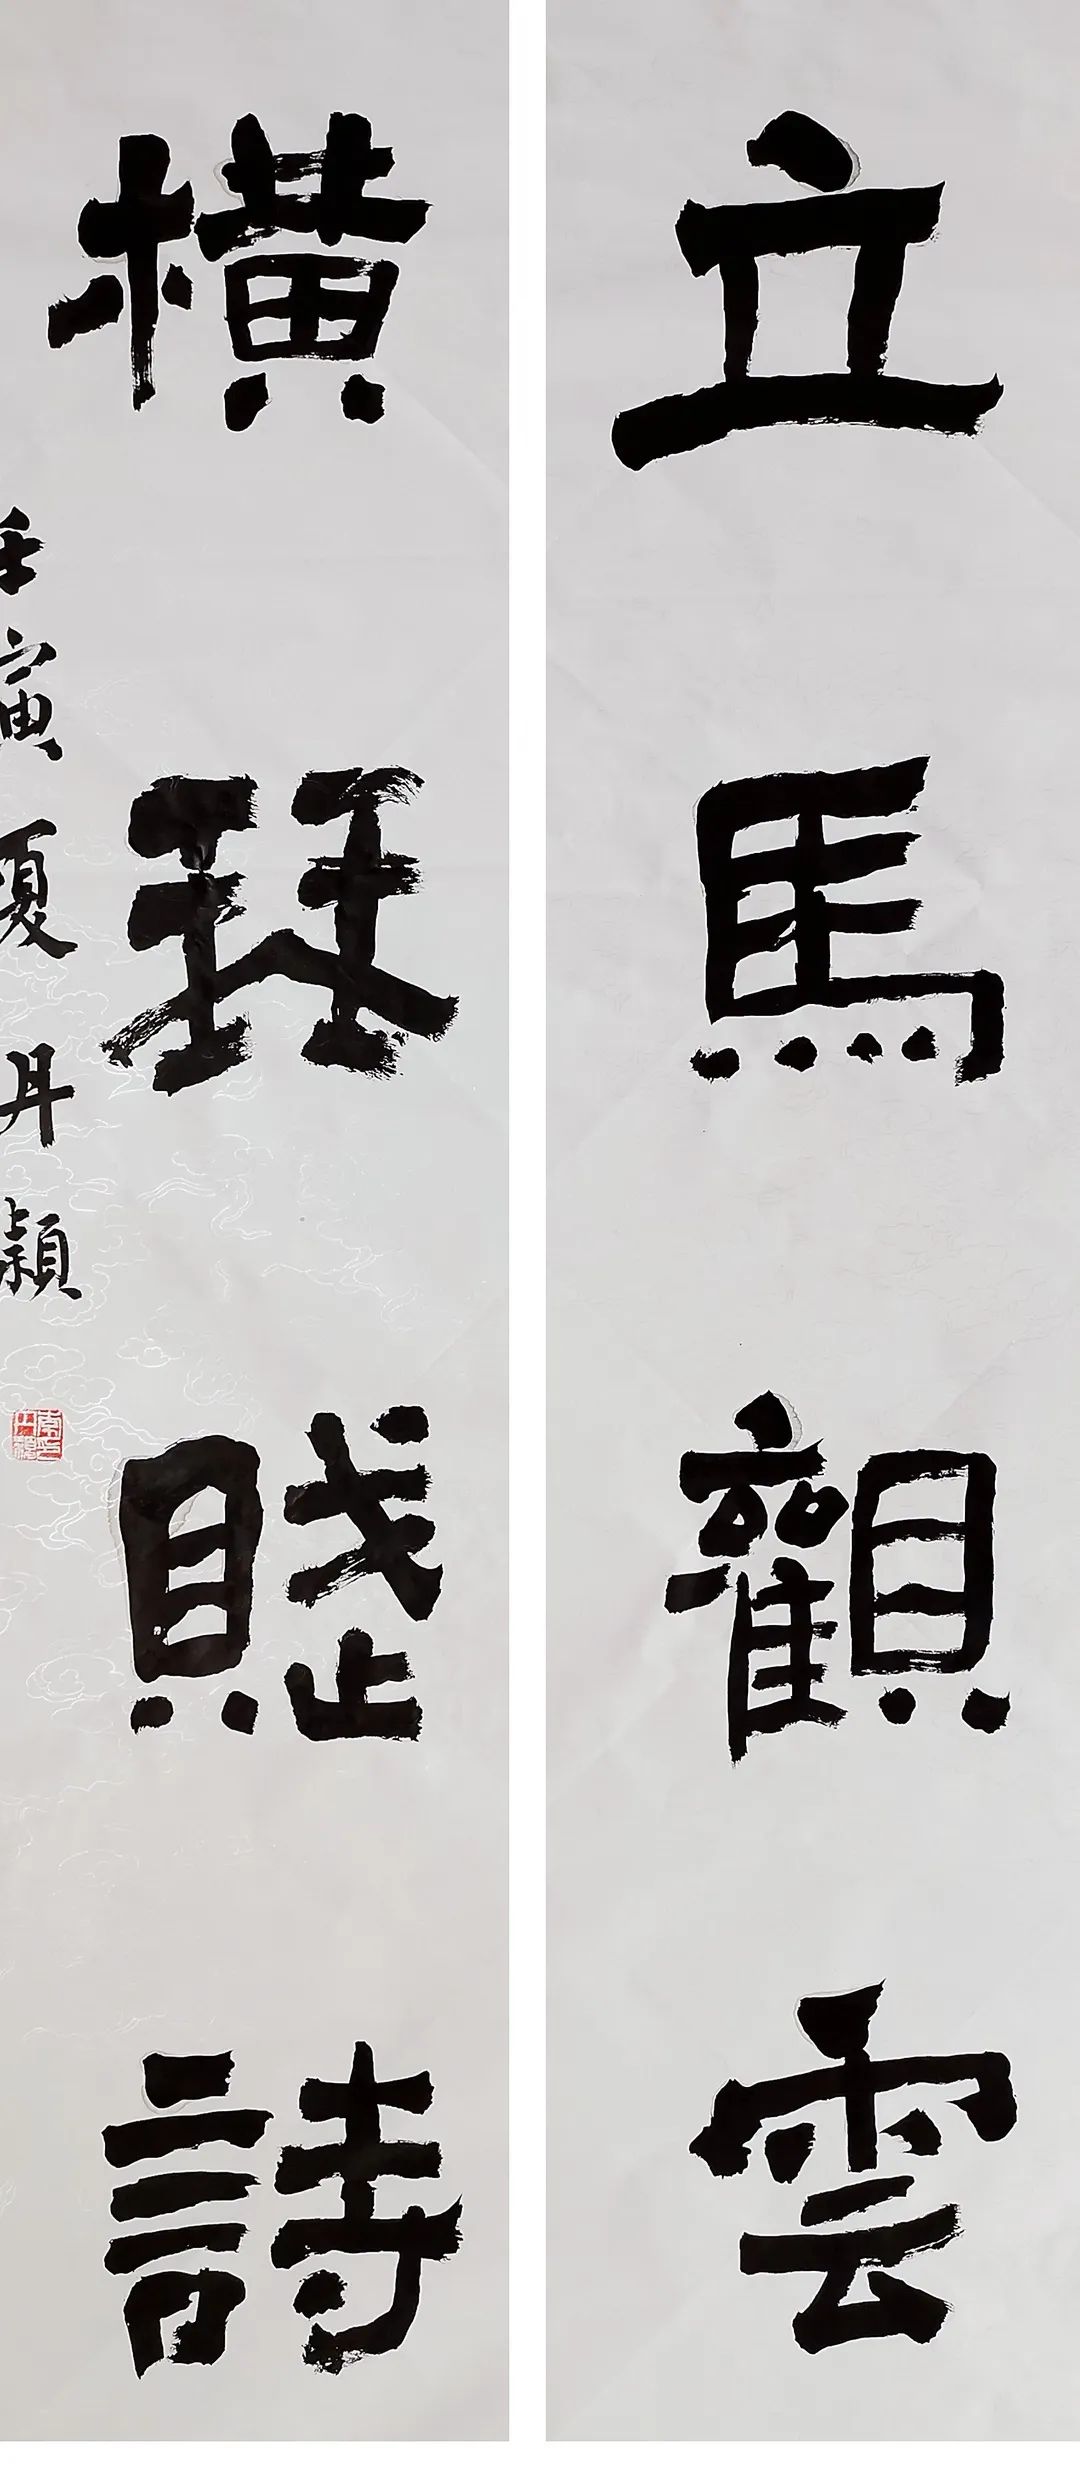 立馬觀雲
横琴賦詩
壬寅夏丹穎